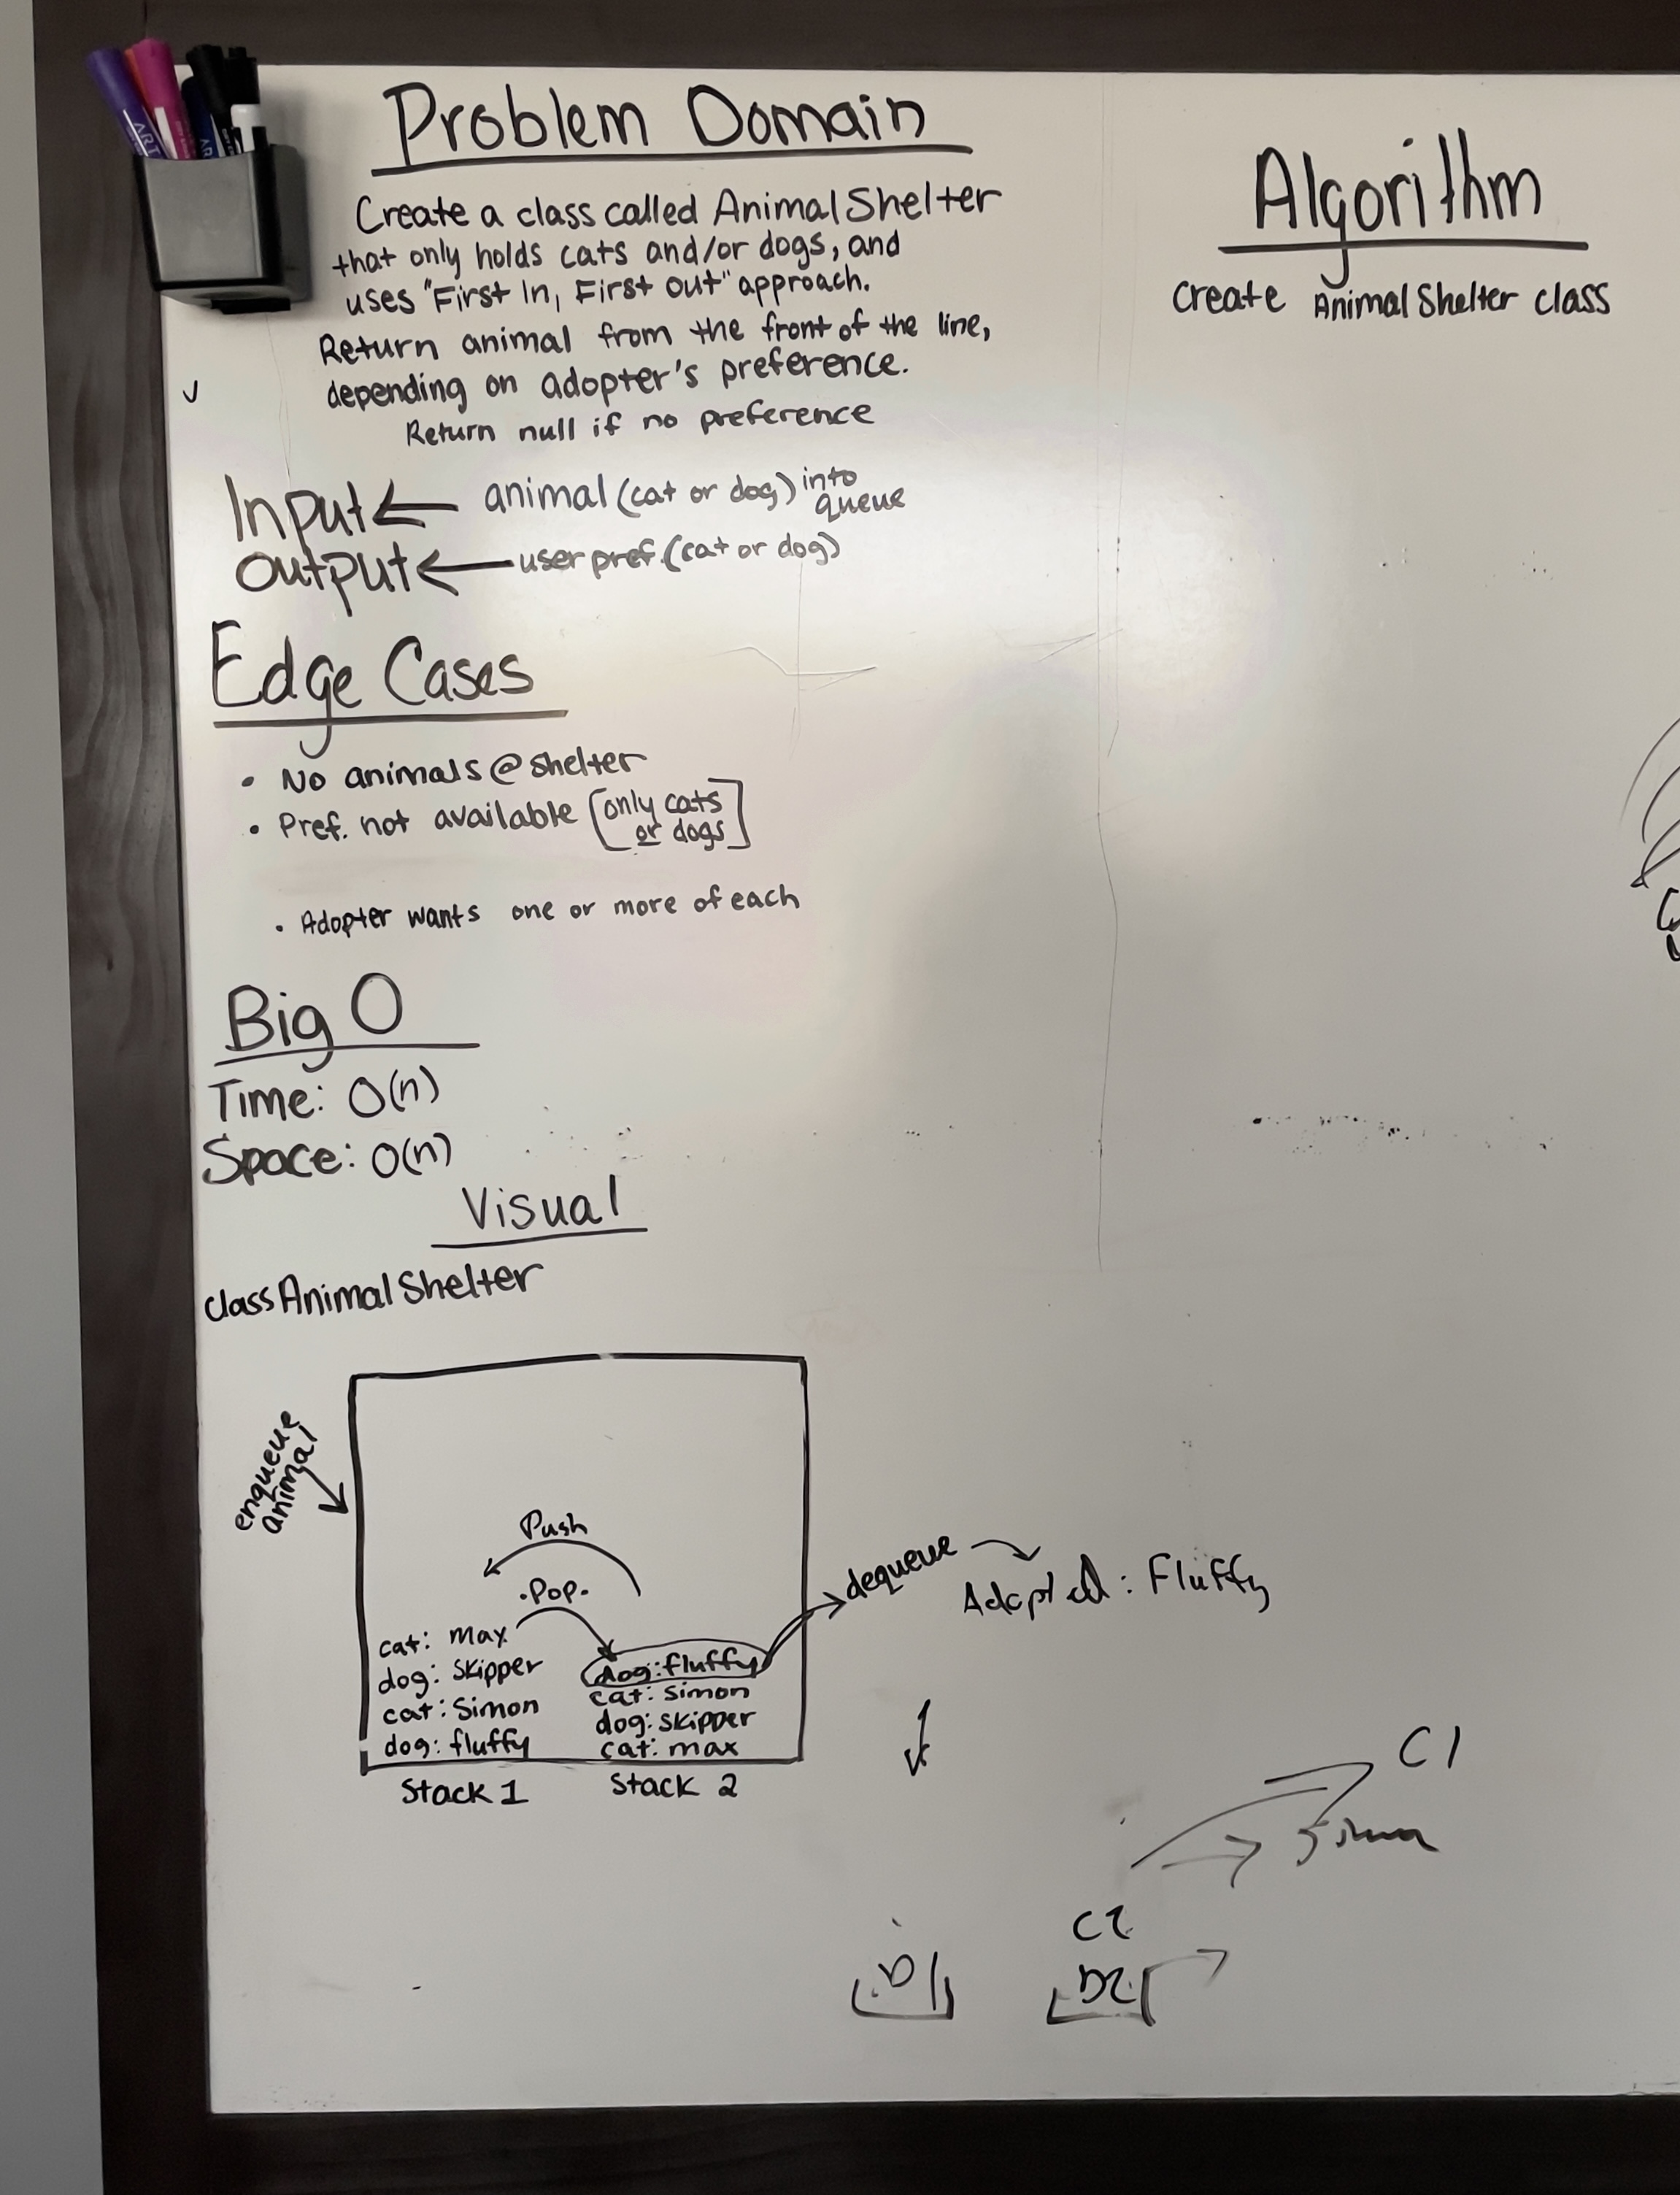 Problem Domain
Create a class called Animal Shelter
that only holds cats and/or dogs, and
uses "First In, First out" approach.
Return animal from the front of the line,
depending on adopter's preference.
Return null if no preference
Input ← animal (cat or dog) into queue
Output ← user pref. (cat or dog)
Edge Cases
• No animals @ shelter
• Pref. not available [only cats
or dogs]
• Adopter wants one or more of each
Big O
Time: O(n)
Space: O(n)
Visual
class Animal Shelter
enqueue
animal
Push
Pop
cat: max
dog: skipper
cat: Simon
dog: fluffy
Stack 1
dog: fluffy
cat: simon
dog: skipper
cat: max
Stack 2
dequeue
Adopted: Fluffy
C1
D2
Algorithm
Create Animal Shelter class
ART